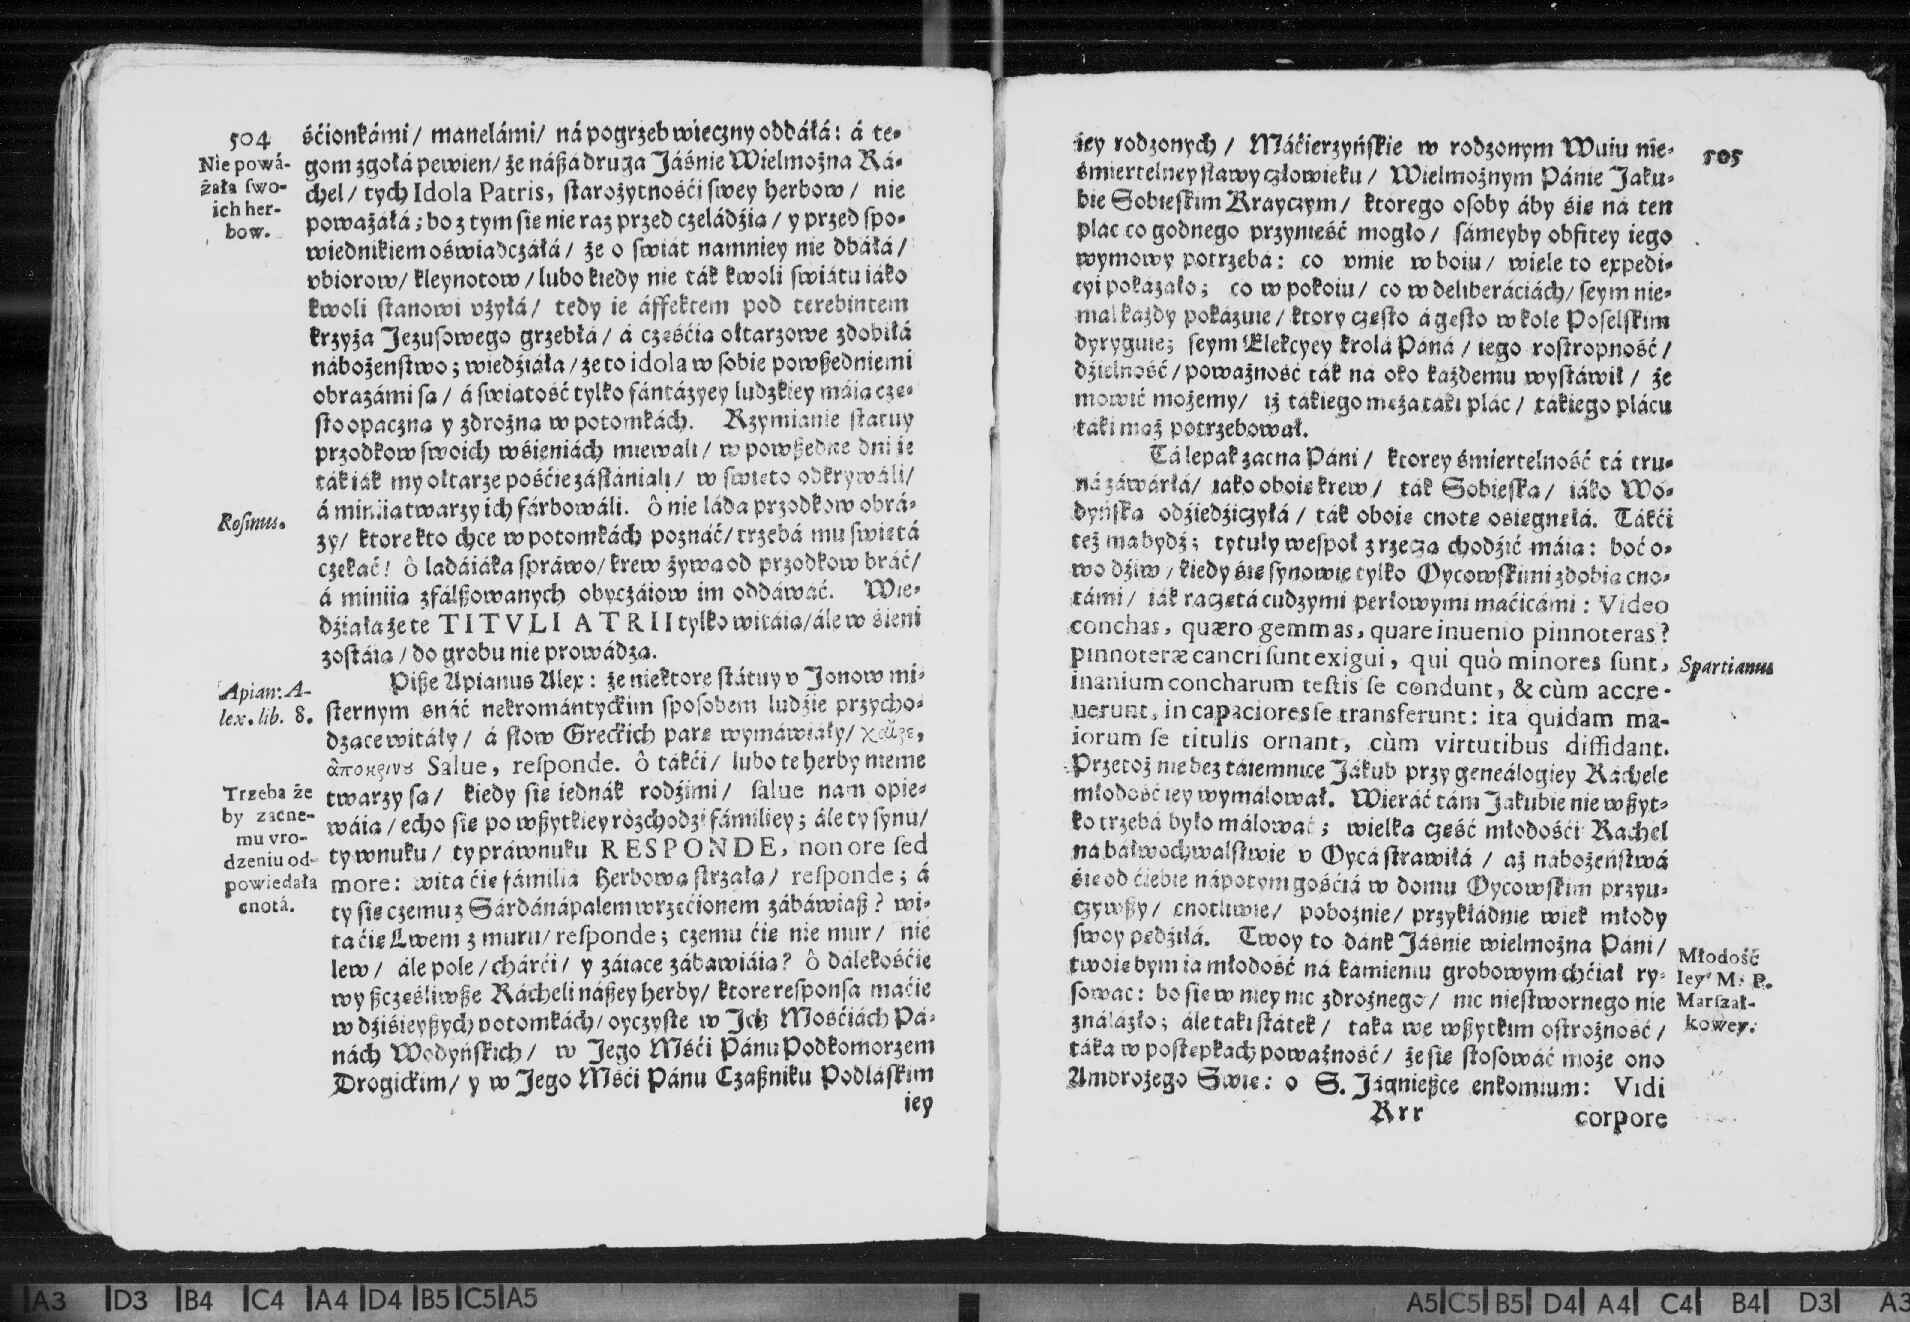 504
śćionkámi/ manelámi/ ná pogrzeb wieczny oddáłá: á te-
gom zgołá pewien/ że nászá druga Jáśnie Wielmożna Rá-
chel/ tych Idola Patris, starożytnośći swey herbow/ nie
poważáłá; bo z tym się nie raz przed czeládźią/ y przed spo-
wiednikiem oświadczáłá/ że o świát namniey nie dbáłá/
vbiorow/ kleynotow/ lubo kiedy nie ták kwoli świátu iáko
kwoli stanowi vżyłá/ tedy ie áffektem pod terebintem
krzyżá Jezusowego grzebłá/ á częśćią ołtarzowe zdobiłá
nabożeństwo; wiedźiáłá/ że to idola w sobie powszedniemi
obrazámi są/ á świątość tylko fántázyey ludzkiey máią czę-
sto opaczną y zdrożną w potomkách. Rzymianie statuy
przodkow swoich w śieniách miewáli/ w powszednie dni ie
ták iák my ołtarze pośćie zásłaniali/ w święto odkrywáli/
á minią twarzy ich fárbowáli. ô nie ládá przodkow obrá-
zy/ ktore kto chce w potomkách poznáć/ trzebá mu świętá
czekáć! ô ladáiáka spráwo/ krew żywą od przodkow bráć/
á miniią zfálszowanych obyczáiow im oddáwáć. Wie-
dźiałá że te TITVLI ATRII tylko witáią/ ále w śieni
zostáią/ do grobu nie prowádzą.
Pisze Apianus Alex: że niektore státuy v Jonow mi-
sternym snáć nekromántyckim sposobem ludźie przycho-
dzące witáły/ á słow Greckich parę wymáwiáły/ χαῖρε,
ἀποκρίνου Salue, responde. ô tákći/ lubo te herby nieme
twarzy są/ kiedy się iednák rodźimi/ salue nam opie-
wáią/ echo się po wszytkiey rózchodzi fámiliey; ále ty synu/
ty wnuku/ ty práwnuku RESPONDE, non ore sed
more: wita ćię fámilia Herbowa strzáłą/ responde; á
ty się czemu z Sárdánápalem wrzećionem zábáwiasz? wi-
ta ćię Lwem z muru/ responde; czemu ćię nie mur/ nie
lew/ ále pole/ chárći/ y záiące zábawiáią? ô dálekośćie
wy szczęśliwsze Rácheli nászey herby/ ktore responsa maćie
w dźiśieyszych potomkách/ oyczyste w Jch Mośćiách Pá-
nách Wodyńskich/ w Jego Mśći Pánu Podkomorzem
Drogickim/ y w Jego Mśći Pánu Czaszniku Podláskim
iey
Nie powá-
żáła swo-
ich her-
bow.
Rosinus.
Apian: A-
lex. lib. 8.
Trzeba że
by zacne-
mu vro-
dzeniu od-
powiedała
cnotá.
505
iey rodzonych/ Máćierzyńskie w rodzonym Wuiu nie-
śmiertelney sławy człowieku/ Wielmożnym Pánie Jaku-
bie Sobieskim Krayczym/ ktorego osoby áby śię ná ten
plac co godnego przynieść mogło/ sámeyby obfitey iego
wymowy potrzebá: co vmie w boiu/ wiele to expedi-
cyi pokázáło; co w pokoiu/ co w deliberáciách/ seym nie-
mal káżdy pokázuie/ ktory często á gęsto w kole Poselskim
dyryguie; seym Elekcyey krolá Páná/ iego rostropność/
dźielność/ poważność ták ná oko káżdemu wystáwił/ że
mowić możemy/ iż tákiego mężá táki plác/ tákiego plácu
táki mąż potrzebował.
Tá lepak zacna Páni/ ktorey śmiertelność tá tru-
ná záwárłá/ iáko oboię krew/ ták Sobieską/ iáko Wo-
dyńską odźiedźiczyłá/ ták oboię cnotę osięgnęłá. Tákći
też ma bydź; tytuły wespoł z rzeczą chodźić máią: boć o-
wo dźiw/ kiedy śię synowie tylko Oycowskimi zdobią cno-
támi/ iák raczętá cudzymi perłowymi maćicámi: Video
conchas, quæro gemmas, quare inuenio pinnoteras?
pinnoteræ cancri sunt exigui, qui quò minores sunt,
inanium concharum testis se condunt, & cùm accre-
uerunt, in capaciores se transferunt: ita quidam ma-
iorum se titulis ornant, cùm virtutibus diffidant.
Przetoż nie bez táiemnice Jákub przy geneálogiey Ráchele
młodość iey wymálował. Wieráć tám Jakubie nie wszyt-
ko trzebá było málowáć; wielką część młodośći Rachel
ná báłwochwalstwie v Oycá strawiłá/ aż nabożeństwá
śię od ćiebie nápotym gośćiá w domu Oycowskim przyu-
czywszy/ cnotliwie/ pobożnie/ przykłádnie wiek młody
swoy pędźiłá. Twoy to dánk Jáśnie wielmożna Páni/
twoię bym ia młodość ná kámieniu grobowym chćiał ry-
sowác: bo się w niey nic zdrożnego/ nic niestwornego nie
ználázło; ále táki státek/ táka we wszytkim ostrożność/
táka w postępkách poważność/ że się stosowáć może ono
Ambrożego Swię: o S. Jágnieszce enkomium: Vidi
Rrr corpore
Spartianus
Młodość
Iey⁰ M. P.
Marszał-
kowey.